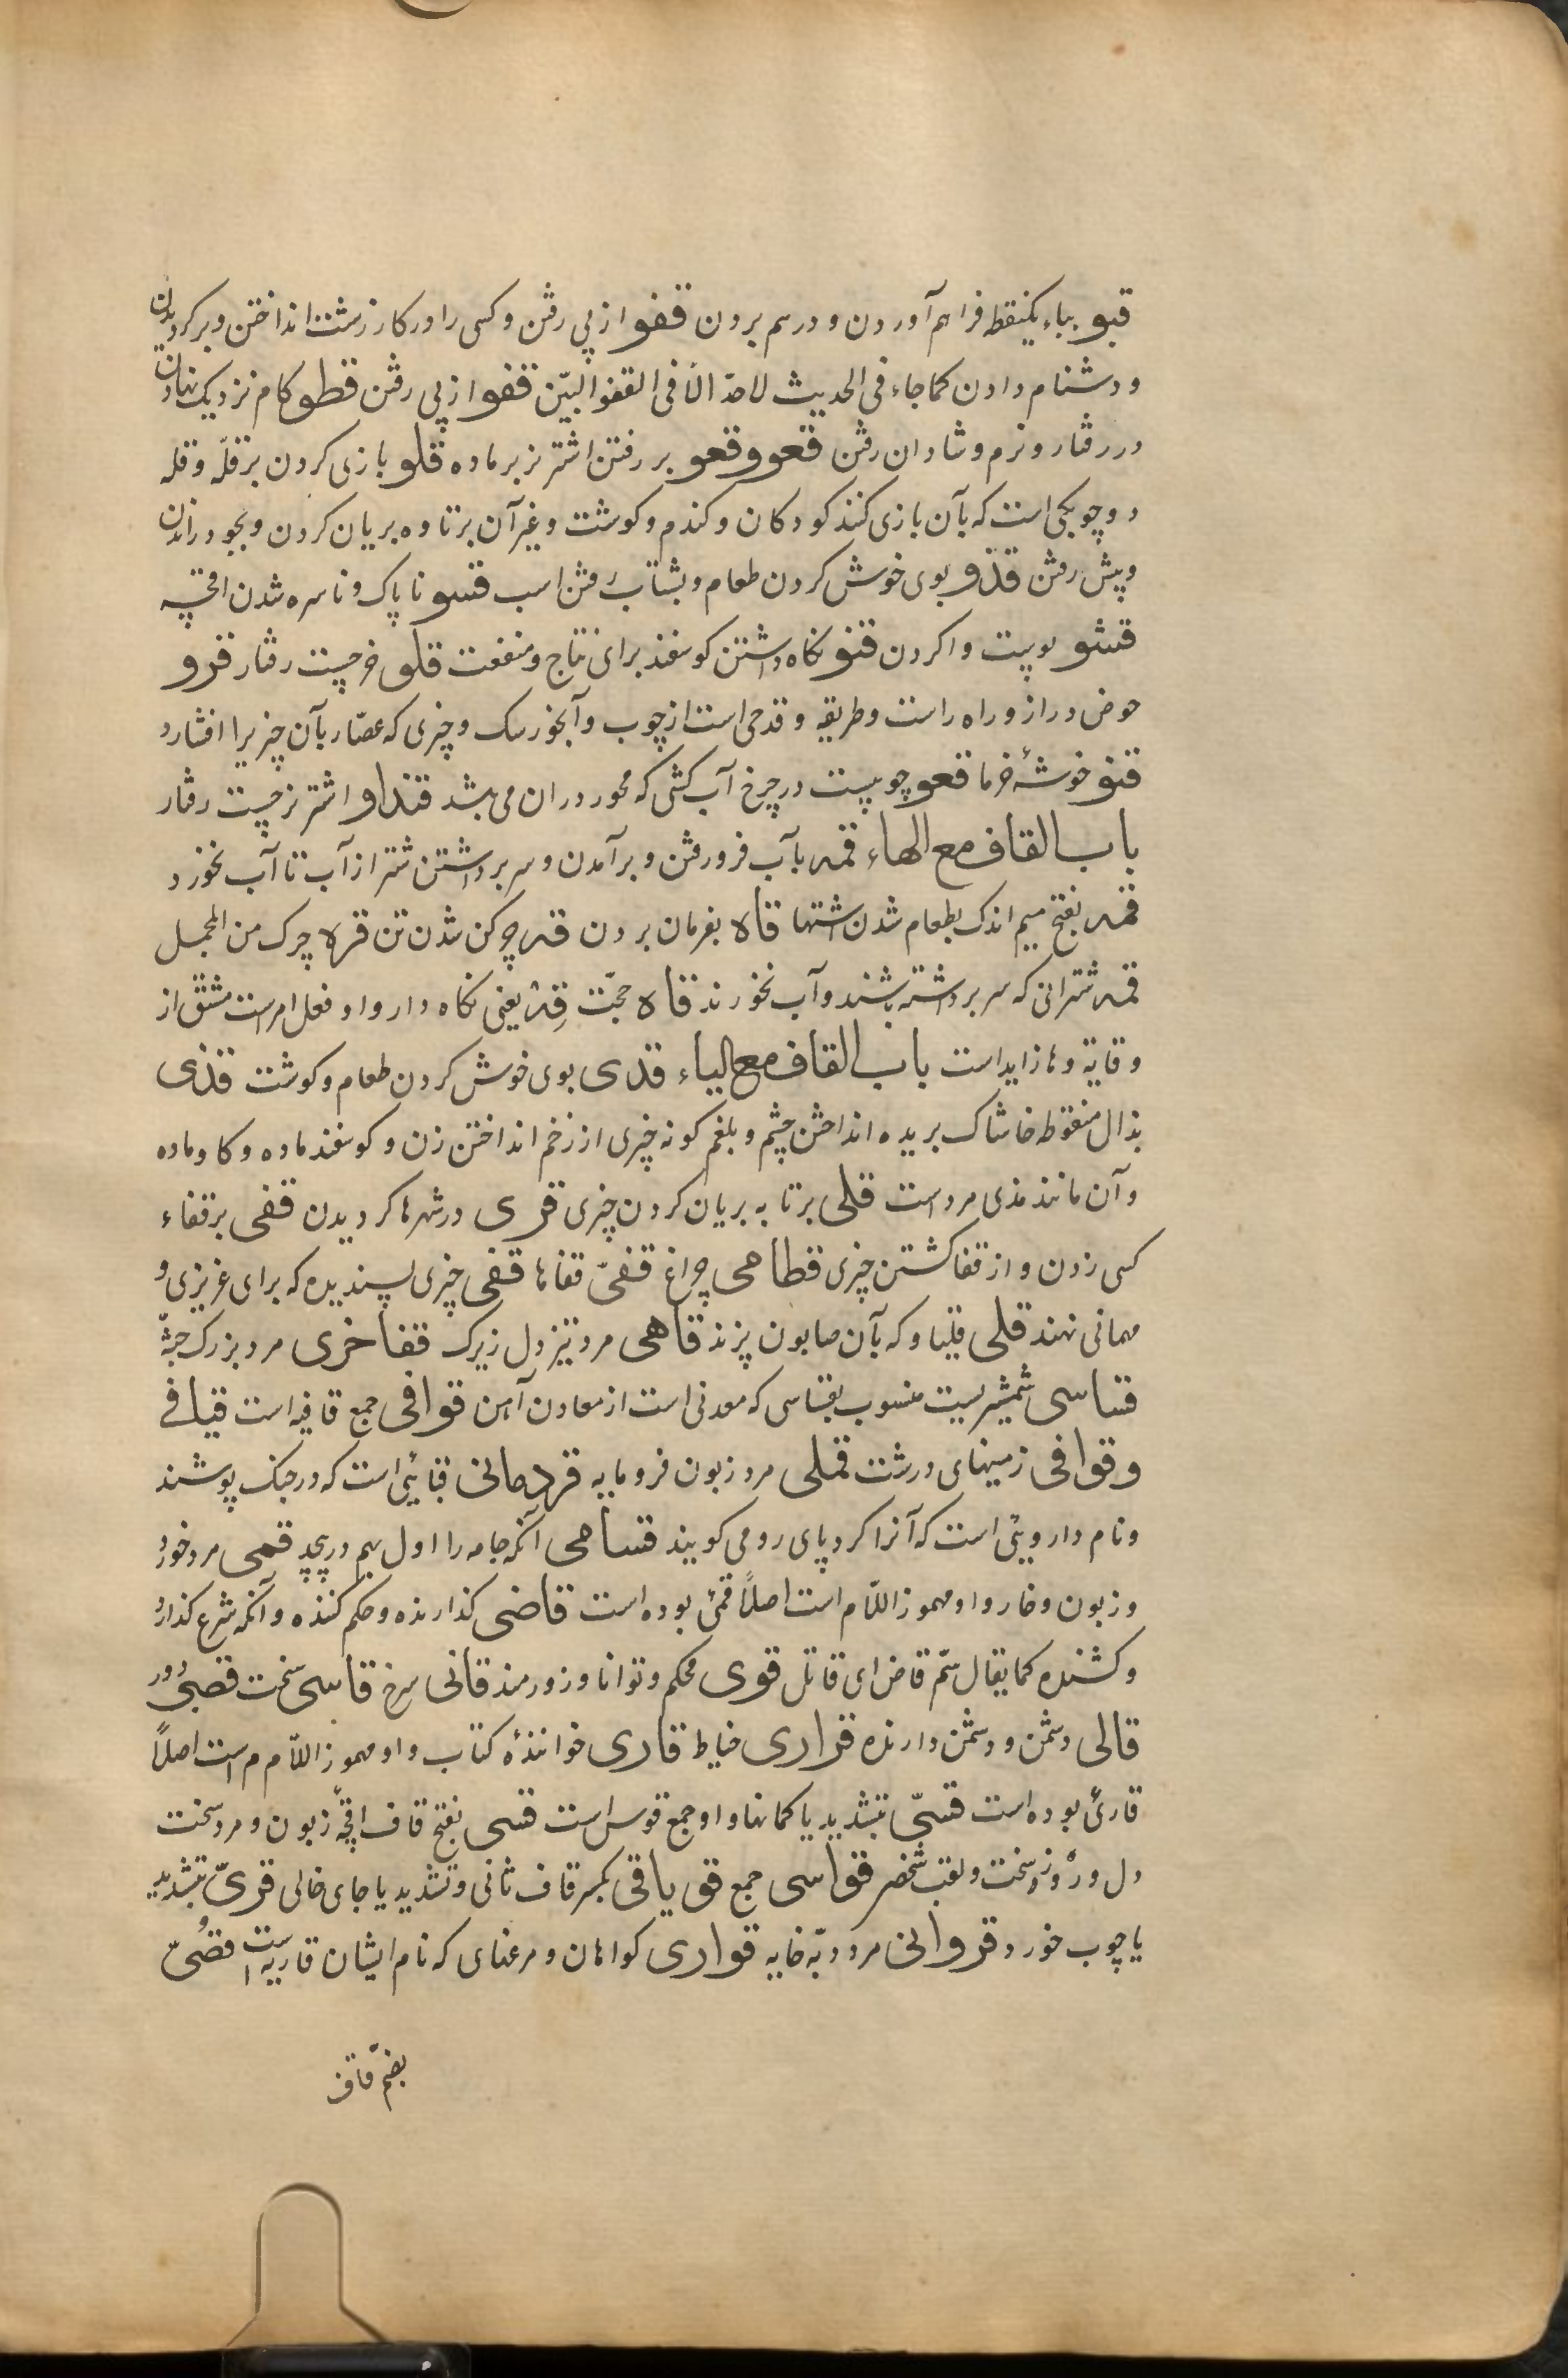 قبو بباء یکنقطه فراهم آوردن و درهم بردن قفو از پی رفتن و کسی را در کار زشت انداختن و برکردیدن
و دشنام دادن کما جاء فی الحدیث لا حدّ الّا فی القفو البیّن قفو از پی رفتن قطو کام نزدیک نهادن
در رفتار و نرم و شادان رفتن قعو و قعو بر رفتن اشتر نر بر ماده قلو بازی کردن بر قلّه و قله
دو چوبکی است که بآن بازی کنند کودکان و کندم و کوشت و غیر آن بر تاوه بریان کردن و بجو در راندن
و پیش رفتن قذو بوی خوش کردن طعام و بشتاب رفتن اسب قسو ناپاک و ناسره شدن اقچه
قشو پوست وا کردن قنو نکاه داشتن کوسفند برای نتاج و منفعت قلو خر چست رفتار قرو
حوض دراز و راه راست و طریقه و قدحی است از چوب و آبخور سک و چیزی که عصّار بآن چیزیرا افشارد
قنو خوشهٔ خرما قعو چوبیست در چرخ آب کشی که محور دران می باشد قنداو اشتر نر چست رفتار
باب القاف مع الهاء قمه بآب فرو رفتن و برآمدن و سر برداشتن شتر از آب تا آب نخورد
قمه بفتح میم اندک بطعام شدن اشتها قاه بفرمان بردن قره چرکن شدن تن قره چرک من المجمل
قمه شترانی که سر برداشته باشند و آب نخورند قاه حجّت قِهْ یعنی نکاه دار و او فعل امر است مشتق از
وقایة و ها زاید است باب القاف مع الیاء قدی بوی خوش کردن طعام و کوشت قذی
بذال منقوطه خاشاک بریده انداختن چشم و بلغم کونه چیزی از زخم انداختن زن و کوسفند ماده و کاو ماده
و آن مانند مذی مرد است قلی بر تابه بریان کردن چیزی قری در شهرها کردیدن قفی بر قفاء
کسی زدن و از قفا کشتن چیزی قطاحی چراغ قفیّ قفاها قفی چیزی پسندیده که برای عزیزی و
مهمانی نهند قلی قلیا و که بآن صابون پزند قاهی مرد تیز دل زیرک قفاخری مرد بزرک جثّه
قساسی شمشیریست منسوب بقساسی که معدنی است از معادن آهن قوافی جمع قافیه است قیافی
و قوافی زمینهای درشت قملی مرد زبون فرومایه قردمانی قبائی است که در جنک پوشند
و نام داروئی است که آنرا کرد پای رومی کویند قسامی آنکه جامه را اول بهم در پیچد قمی مرد خورد
و زبون و خار و او مهموز اللّام است اصلاً قمئ بوده است قاضی کذارنده و حکم کننده و آنکه شرع کذارد
و کشنده کما یقال سمّ قاض ای قاتل قوی محکم و توانا و زورمند قانی سرخ قاسی سخت قصیّ دور
قالی دشمن و دشمن دارنده قراری خیاط قاری خوانندهٔ کتاب و او مهموز اللّام است اصلاً
قارئ بوده است قسیّ بتشدید یا کمانها و او جمع قوس است قسی بفتح قاف اقچهٔ زبون و مرد سخت
دل و روز سخت و لقب شخص قواسی جمع قو یاقی بکسر قاف ثانی و تشدید یا جای خالی قریّ بتشدید
یا چوب خورد قروانی مرد دبّه خایه قواری کواهان و مرغهای که نام ایشان قاریه است قضیّ
بضمّ قاف